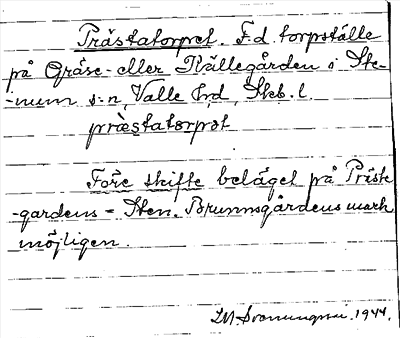 Prästatorpet. F.d. torpställe
på Gräse- eller Källegården i Ste-
-num s:n, Valle hd, Skb. l.
præstatorpət
Före skifte beläget på Präste
-gardens - Sten. Brunnsgårdens mark
möjligen.
1944.